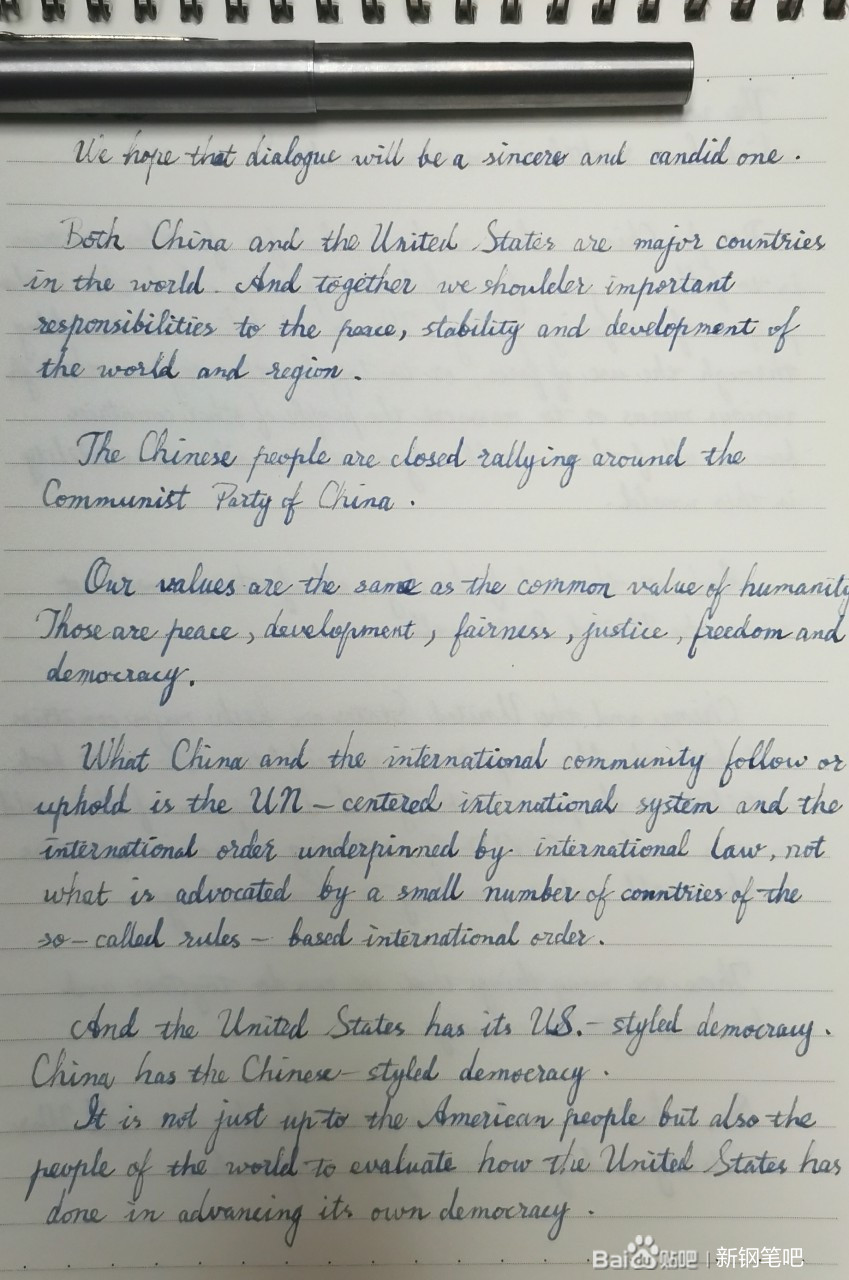 We hope that dialogue will be a sincere and candid one.
Both China and the United States are major countries
in the world. And together we shoulder important
responsibilities to the peace, stability and development of
the world and region.
The Chinese people are closed rallying around the
Communist Party of China.
Our values are the same as the common value of humanity
Those are peace, development, fairness, justice, freedom and
democracy.
What China and the international community follow or
uphold is the UN-centered international system and the
international order underpinned by international law, not
what is advocated by a small number of countries of the
so-called rules-based international order.
And the United States has its U.S.-styled democracy.
China has the Chinese-styled democracy.
It is not just up to the American people but also the
people of the world to evaluate how the United States has
done in advancing its own democracy.
Baidu贴吧 | 新钢笔吧